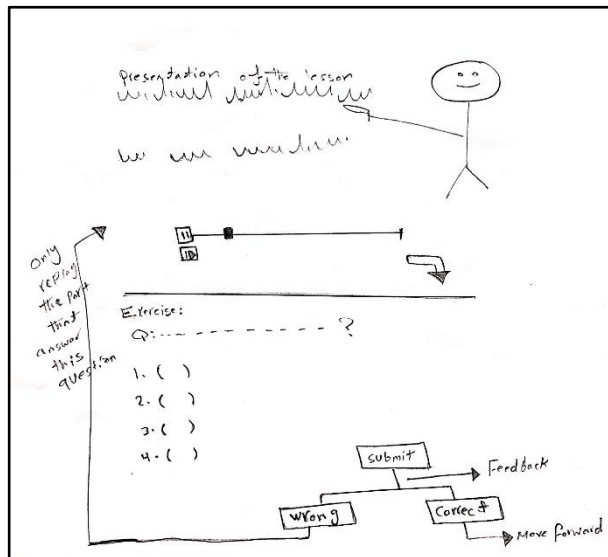 Presentation of the lesson
only
replay
the part
that
answer
this
question
Exercise:
Q: ------------?
1. ( )
2. ( )
3. ( )
4. ( )
submit
Feedback
wrong
Correct
Move forward